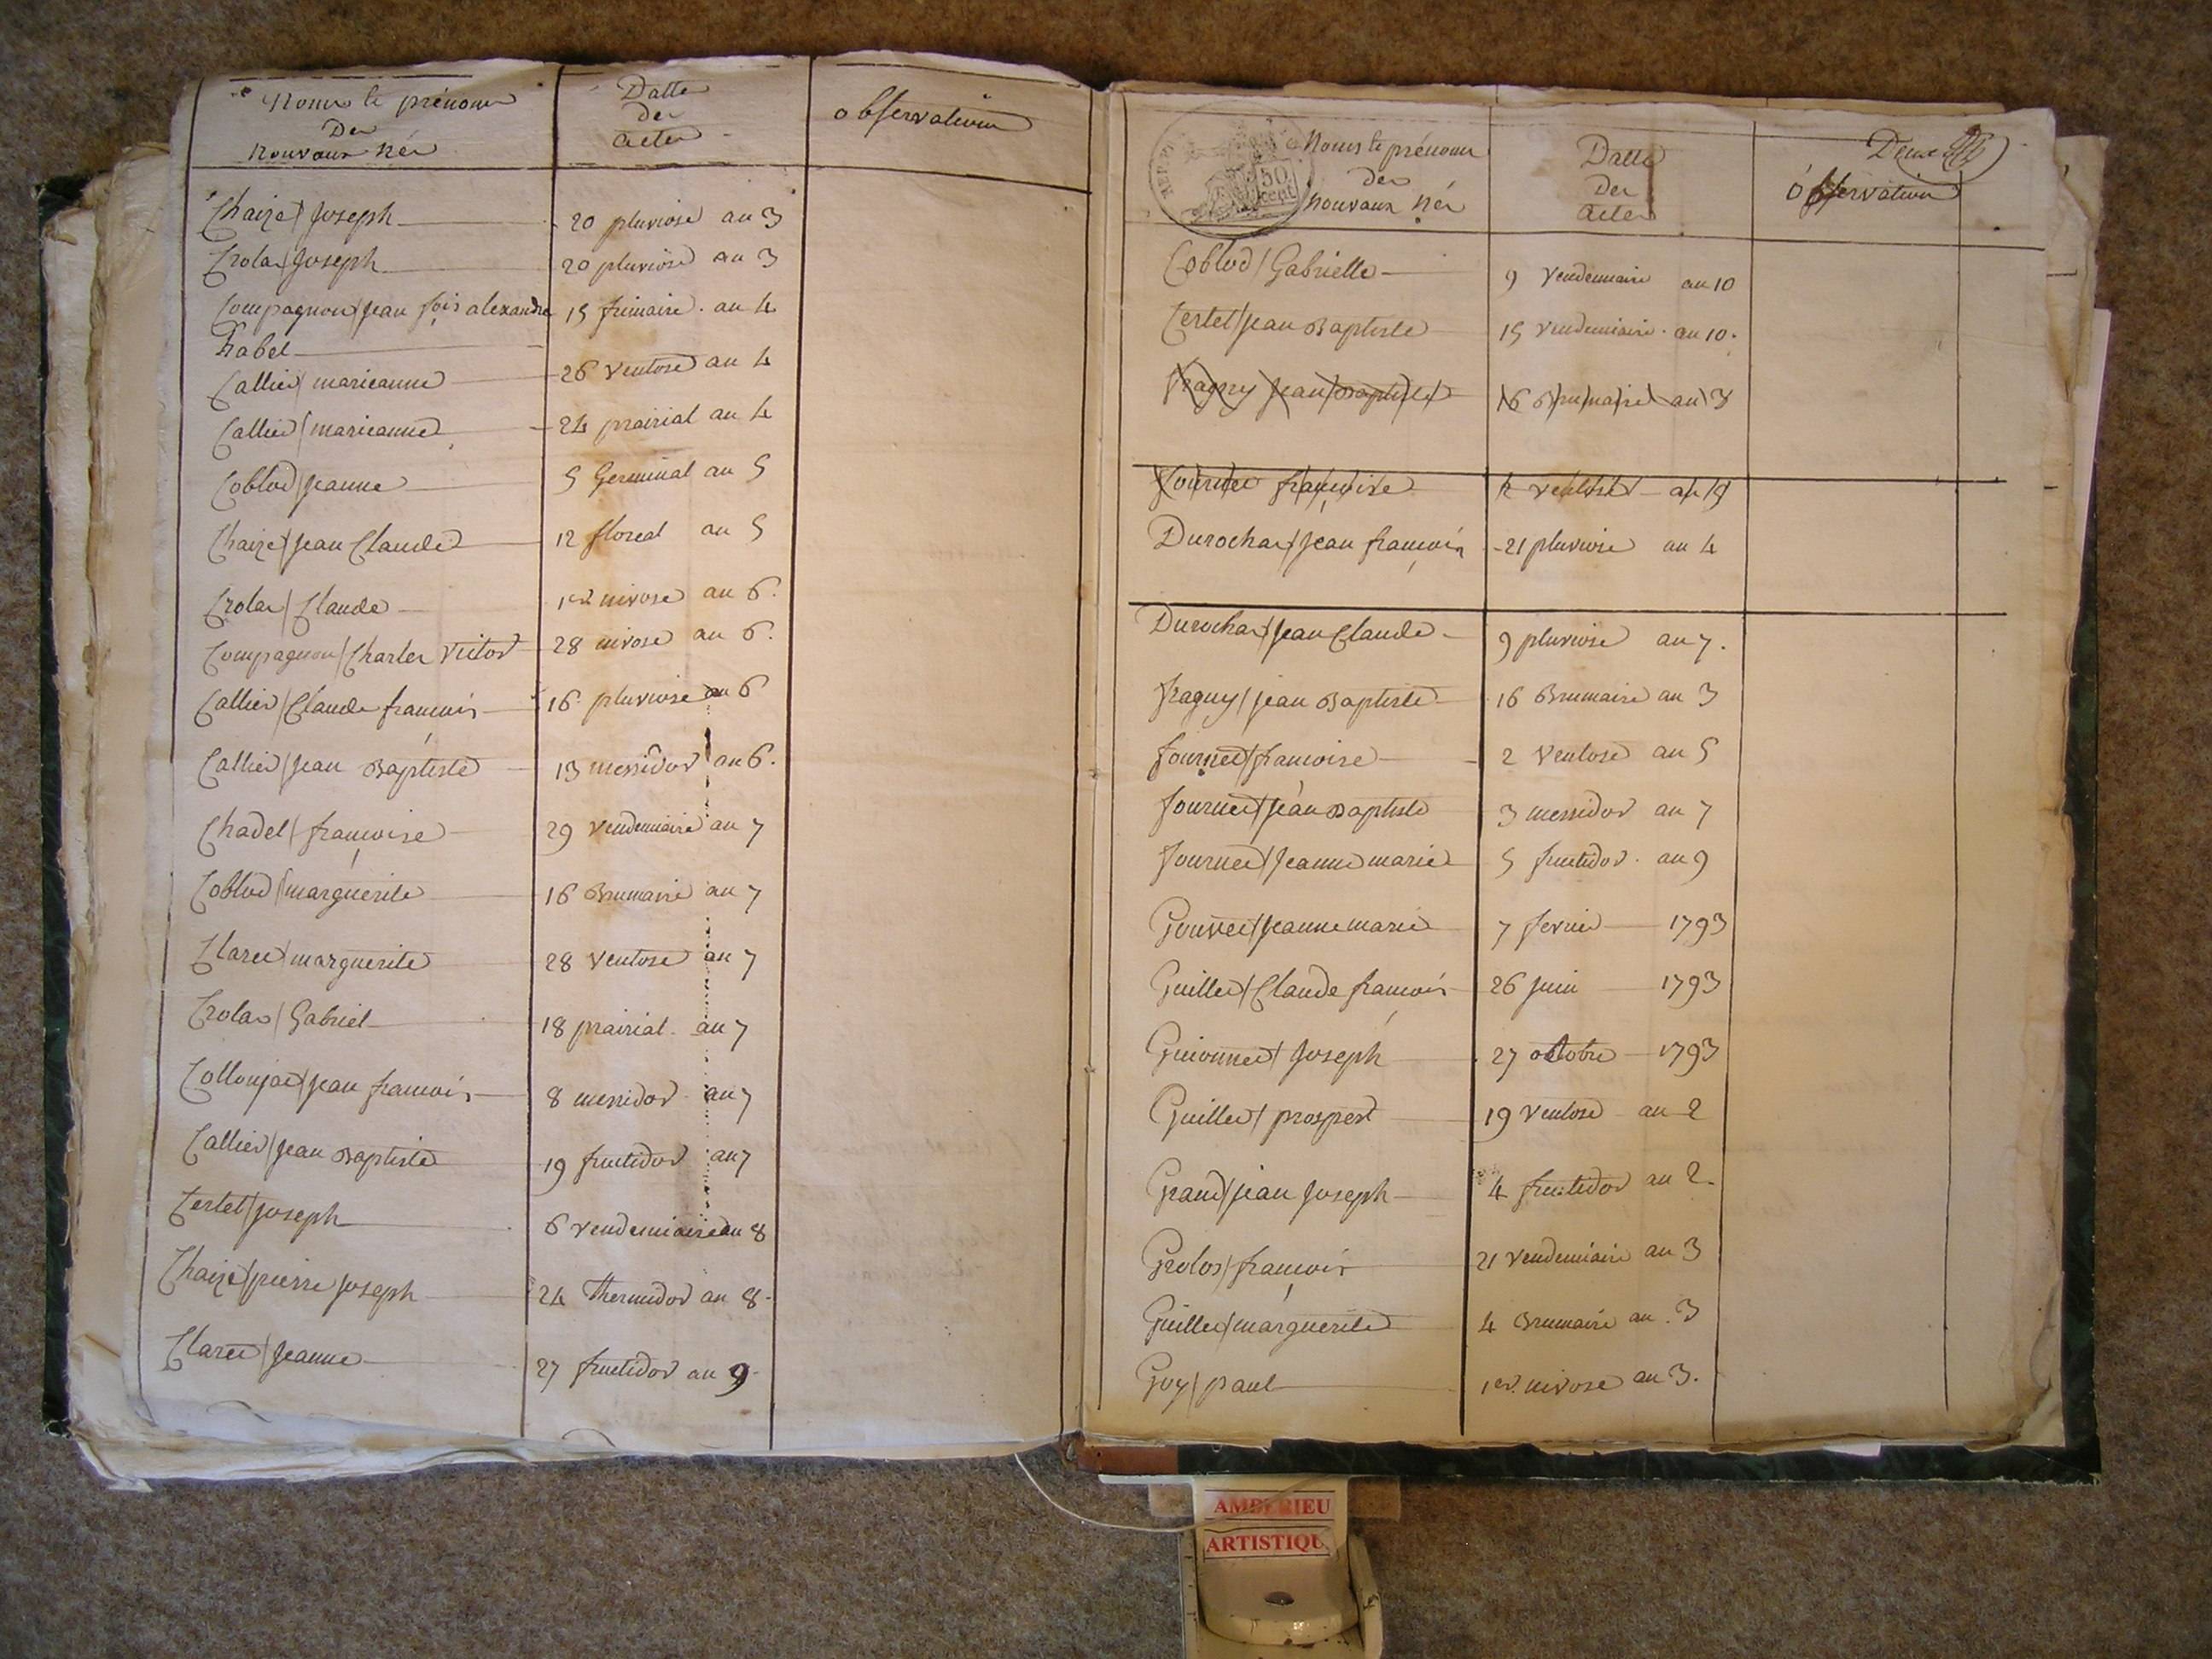 Noms et prénoms
Des
Nouvaux Nés
Datte
Des
Actes
observations
Chaize Joseph 20 pluviose an 3
Crolas Joseph 20 pluviose an 3
Compagnon Jean fois alexandre 15 frimaire an 4
Isabel
Callier marieanne 26 ventose an 4
Callier marieanne 24 prairial an 4
Coblod Jeanne 5 Germinal an 5
Chaize Jean Claude 12 floreal an 5
Crolas Claude 1er nivose an 6
Compagnon Charles Victor 28 nivose an 6
Callier Claude françois 16 pluviose an 6
Callier Jean Baptiste 13 messidor an 6
Chadel françoise 29 vendemiaire an 7
Coblod marguerite 16 Brumaire an 7
Claret marguerite 28 ventose an 7
Crolas Gabriel 18 prairial an 7
Jean françois 8 messidor an 7
Callier Jean Baptiste 19 fructidor an 7
Certet Joseph 6 vendemiaire an 8
Chaize pierre Joseph 24 thermidor an 8
Claret Jeanne 27 fructidor an 9
50
cent
Noms et prénoms
des
Nouvaux Nés
Datte
Des
Actes
Deux
observations
Coblod Gabrielle 9 vendemiaire an 10
Certet Jean Baptiste 15 vendemiaire an 10
Fraguy Jean Baptiste 16 Brumaire an 3
Fournier françoise 2 ventose an 5
Durochat Jean françois 21 pluviose an 4
Durochat Jean Claude 9 pluviose an 7
Fraguy Jean Baptiste 16 Brumaire an 3
Fournier françoise 2 ventose an 5
Fournier Jean Baptiste 3 messidor an 7
Fournier Jeanne marie 5 fructidor an 9
Jeanne marie 7 fevrier 1793
Guillet Claude françois 26 Juin 1793
Guionnet Joseph 27 octobre 1793
Guillet prospert 19 ventose an 2
Grand Jean Joseph 4 fructidor an 2
Grolos françois 21 vendemiaire an 3
Guillet marguerite 4 Brumaire an 3
Guy paul 1er nivose an 3
AMBERIEU
ARTISTIQU